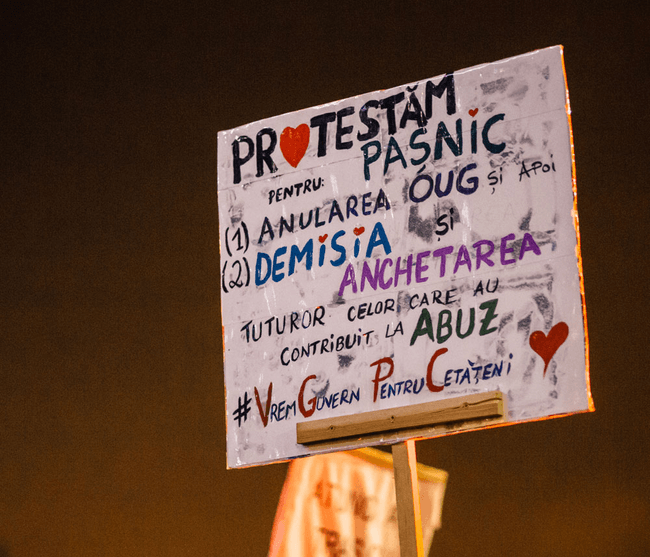 PROTESTĂM
PAȘNIC
PENTRU:
(1) ANULAREA OUG și APOI
(2) DEMISIA și
ANCHETAREA
TUTUROR CELOR CARE AU
CONTRIBUIT LA ABUZ
#VREM GUVERN PENTRU CETĂȚENI